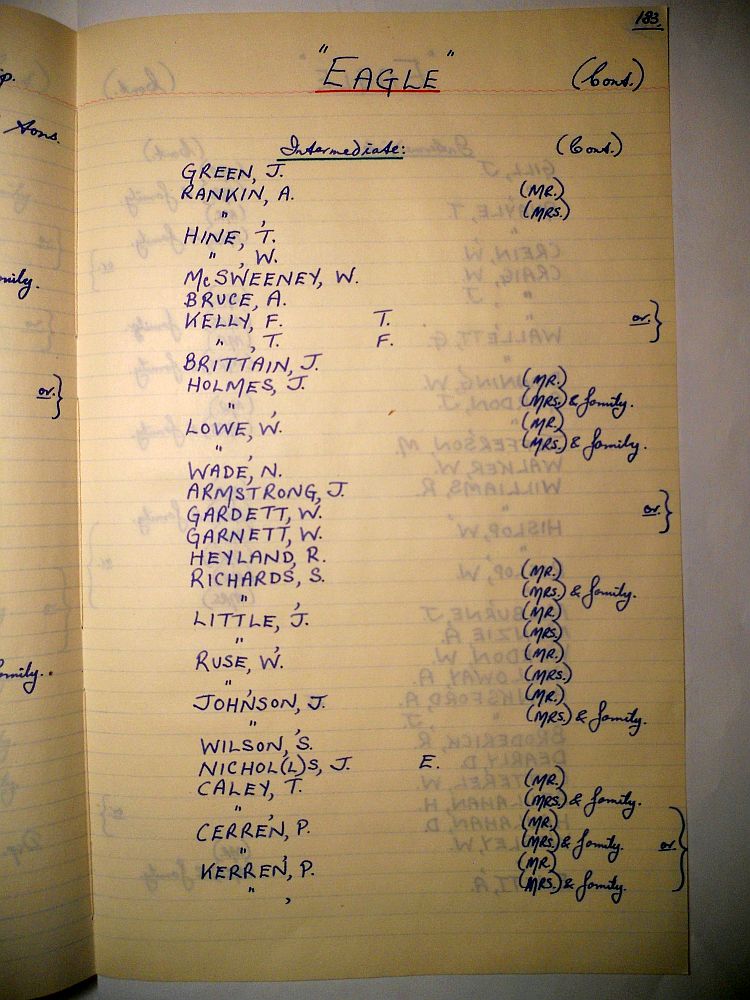 183.
"EAGLE" (Cont.)
Intermediate: (Cont.)
GREEN, J.
RANKIN, A. (MR.)
" , (MRS.)
HINE, T.
" , W.
McSWEENEY, W.
BRUCE, A.
KELLY, F. T. or }
" , T. F.
BRITTAIN, J.
HOLMES, J. (MR.)
" , (MRS.) & family.
LOWE, W. (MR.)
" , (MRS.) & family.
WADE, N.
ARMSTRONG, J.
GARDETT, W. or }
GARNETT, W.
HEYLAND, R.
RICHARDS, S. (MR.)
" , (MRS.) & family.
LITTLE, J. (MR.)
" , (MRS)
RUSE, W. (MR.)
" , (MRS.)
JOHNSON, J. (MR.)
" , (MRS.) & family.
WILSON, S.
NICHOL(L)S, J. E.
CALEY, T. (MR.)
" , (MRS.) & family.
CERREN, P. (MR.)
" , (MRS.) & family. or }
KERREN, P. (MR.)
" , (MRS.) & family.
Sons.
or }